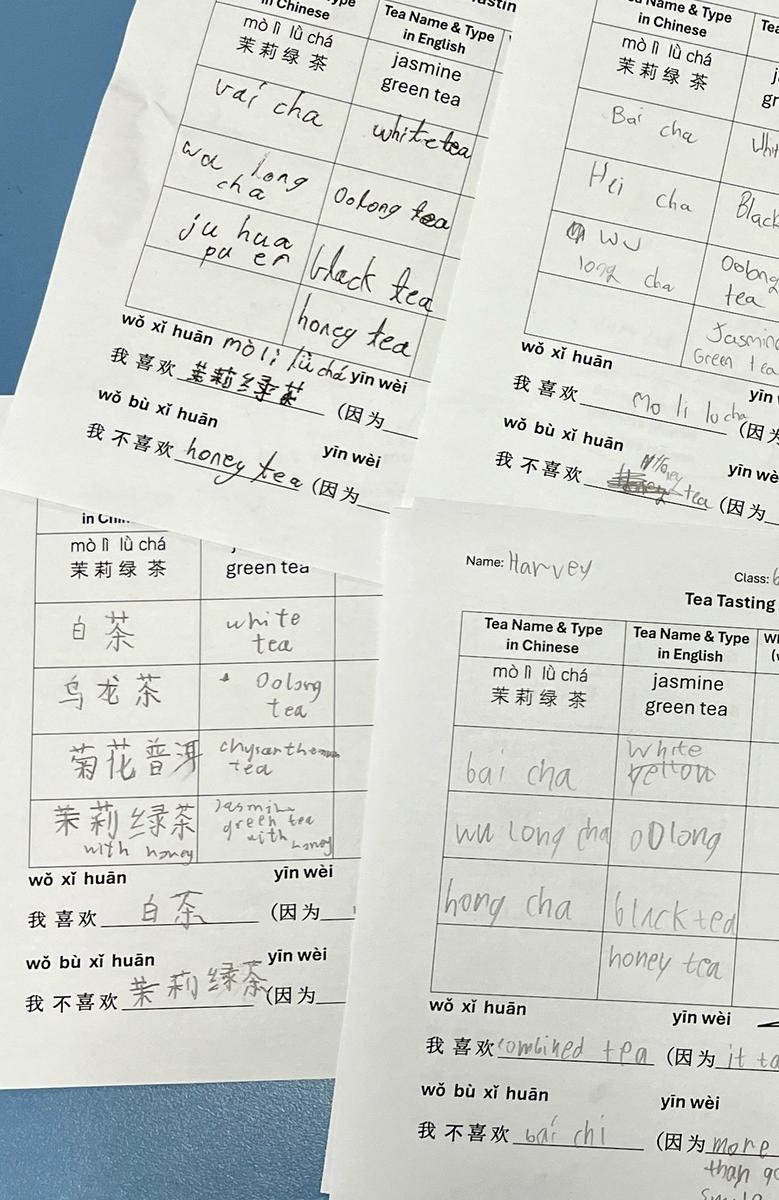 in Chinese
Tea Name & Type
in English
mò lì lǜ chá
茉莉绿 茶
jasmine
green tea
vai cha
white tea
wu long
cha
Oolong tea
ju hua
pu er
black tea
honey tea
wǒ xǐ huān mò li lǜ chá yīn wèi
我 喜欢 茉莉绿茶 (因为
wǒ bù xǐ huān
yīn wèi
我 不喜欢 honey tea (因为
in Chinese
mò lì lǜ chá
茉莉绿 茶
Bai cha
Hei cha
Black
wu
long cha
Oolong
tea
Jasmine
Green tea
wǒ xǐ huān
我 喜欢 mo li lu cha (因为
wǒ bù xǐ huān
yīn wè
我 不喜欢 Honey tea (因为
mò lì lǜ chá
茉莉绿 茶
green tea
白 茶
white
tea
乌 龙 茶
Oolong
tea
菊花普洱
tea
茉莉绿茶
with honey
Jasmine
green tea
with honey
wǒ xǐ huān
yīn wèi
我 喜欢 白 茶 (因为
wǒ bù xǐ huān
yīn wèi
我 不喜欢 茉莉绿茶 (因为
Name: Harvey
Class: 6
Tea Tasting
Tea Name & Type
in Chinese
Tea Name & Type
in English
mò lì lǜ chá
茉莉绿 茶
jasmine
green tea
bai cha
white
yellow
wu long cha
oolong
hong cha
black tea
honey tea
wǒ xǐ huān
yīn wèi
我 喜欢 combined tea (因为 it ta
wǒ bù xǐ huān
yīn wèi
我 不喜欢 bai chi (因为 more
than